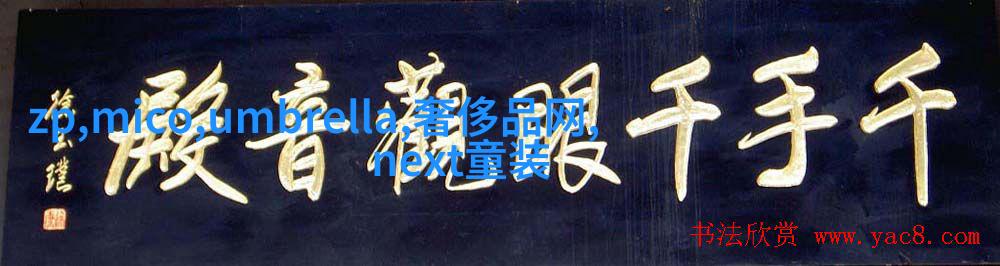 千手千眼觀音殿
zp,mico,umbrella,奢侈品网,
next童装
书法欣赏 www.yac8.com